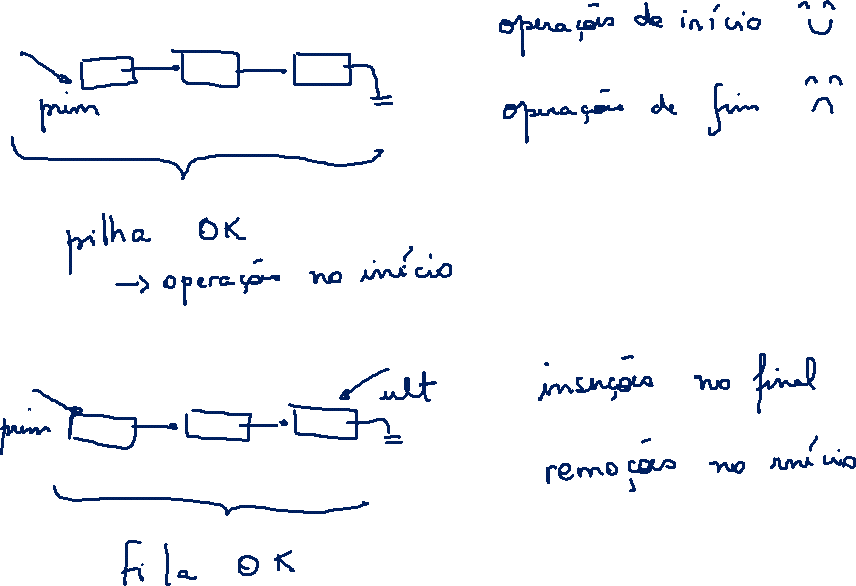 operações de início
prim
operações de fim
pilha OK
→ operações no início
ult
prim
inserções no final
remoções no início
fila OK